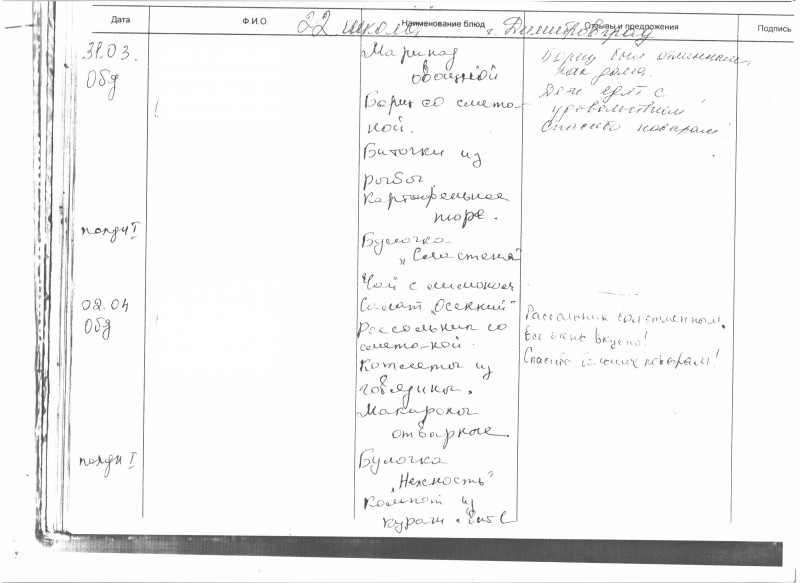 Дата Ф.И.О. Наименование блюд Отзывы и предложения Подпись
22 школа, г. Димитровград
31.03.
Обд
Маринад
овощной
Борщ со смета-
ной.
Биточки из
рыбы
Картофельное
пюре.
Борщ был отменным,
как дома.
Дети едят с
удовольствием!
Спасибо поварам!
полдн I
Булочка
"Сластена"
Чай с лимоном
02.04
Обд
Салат "Осенний"
Рассольник со
смета-ной.
Котлеты из
говядины.
Макароны
отварные.
Рассольник
Все очень вкусно!
Спасибо поварам!
полдн I
Булочка
"Нежность"
Компот из